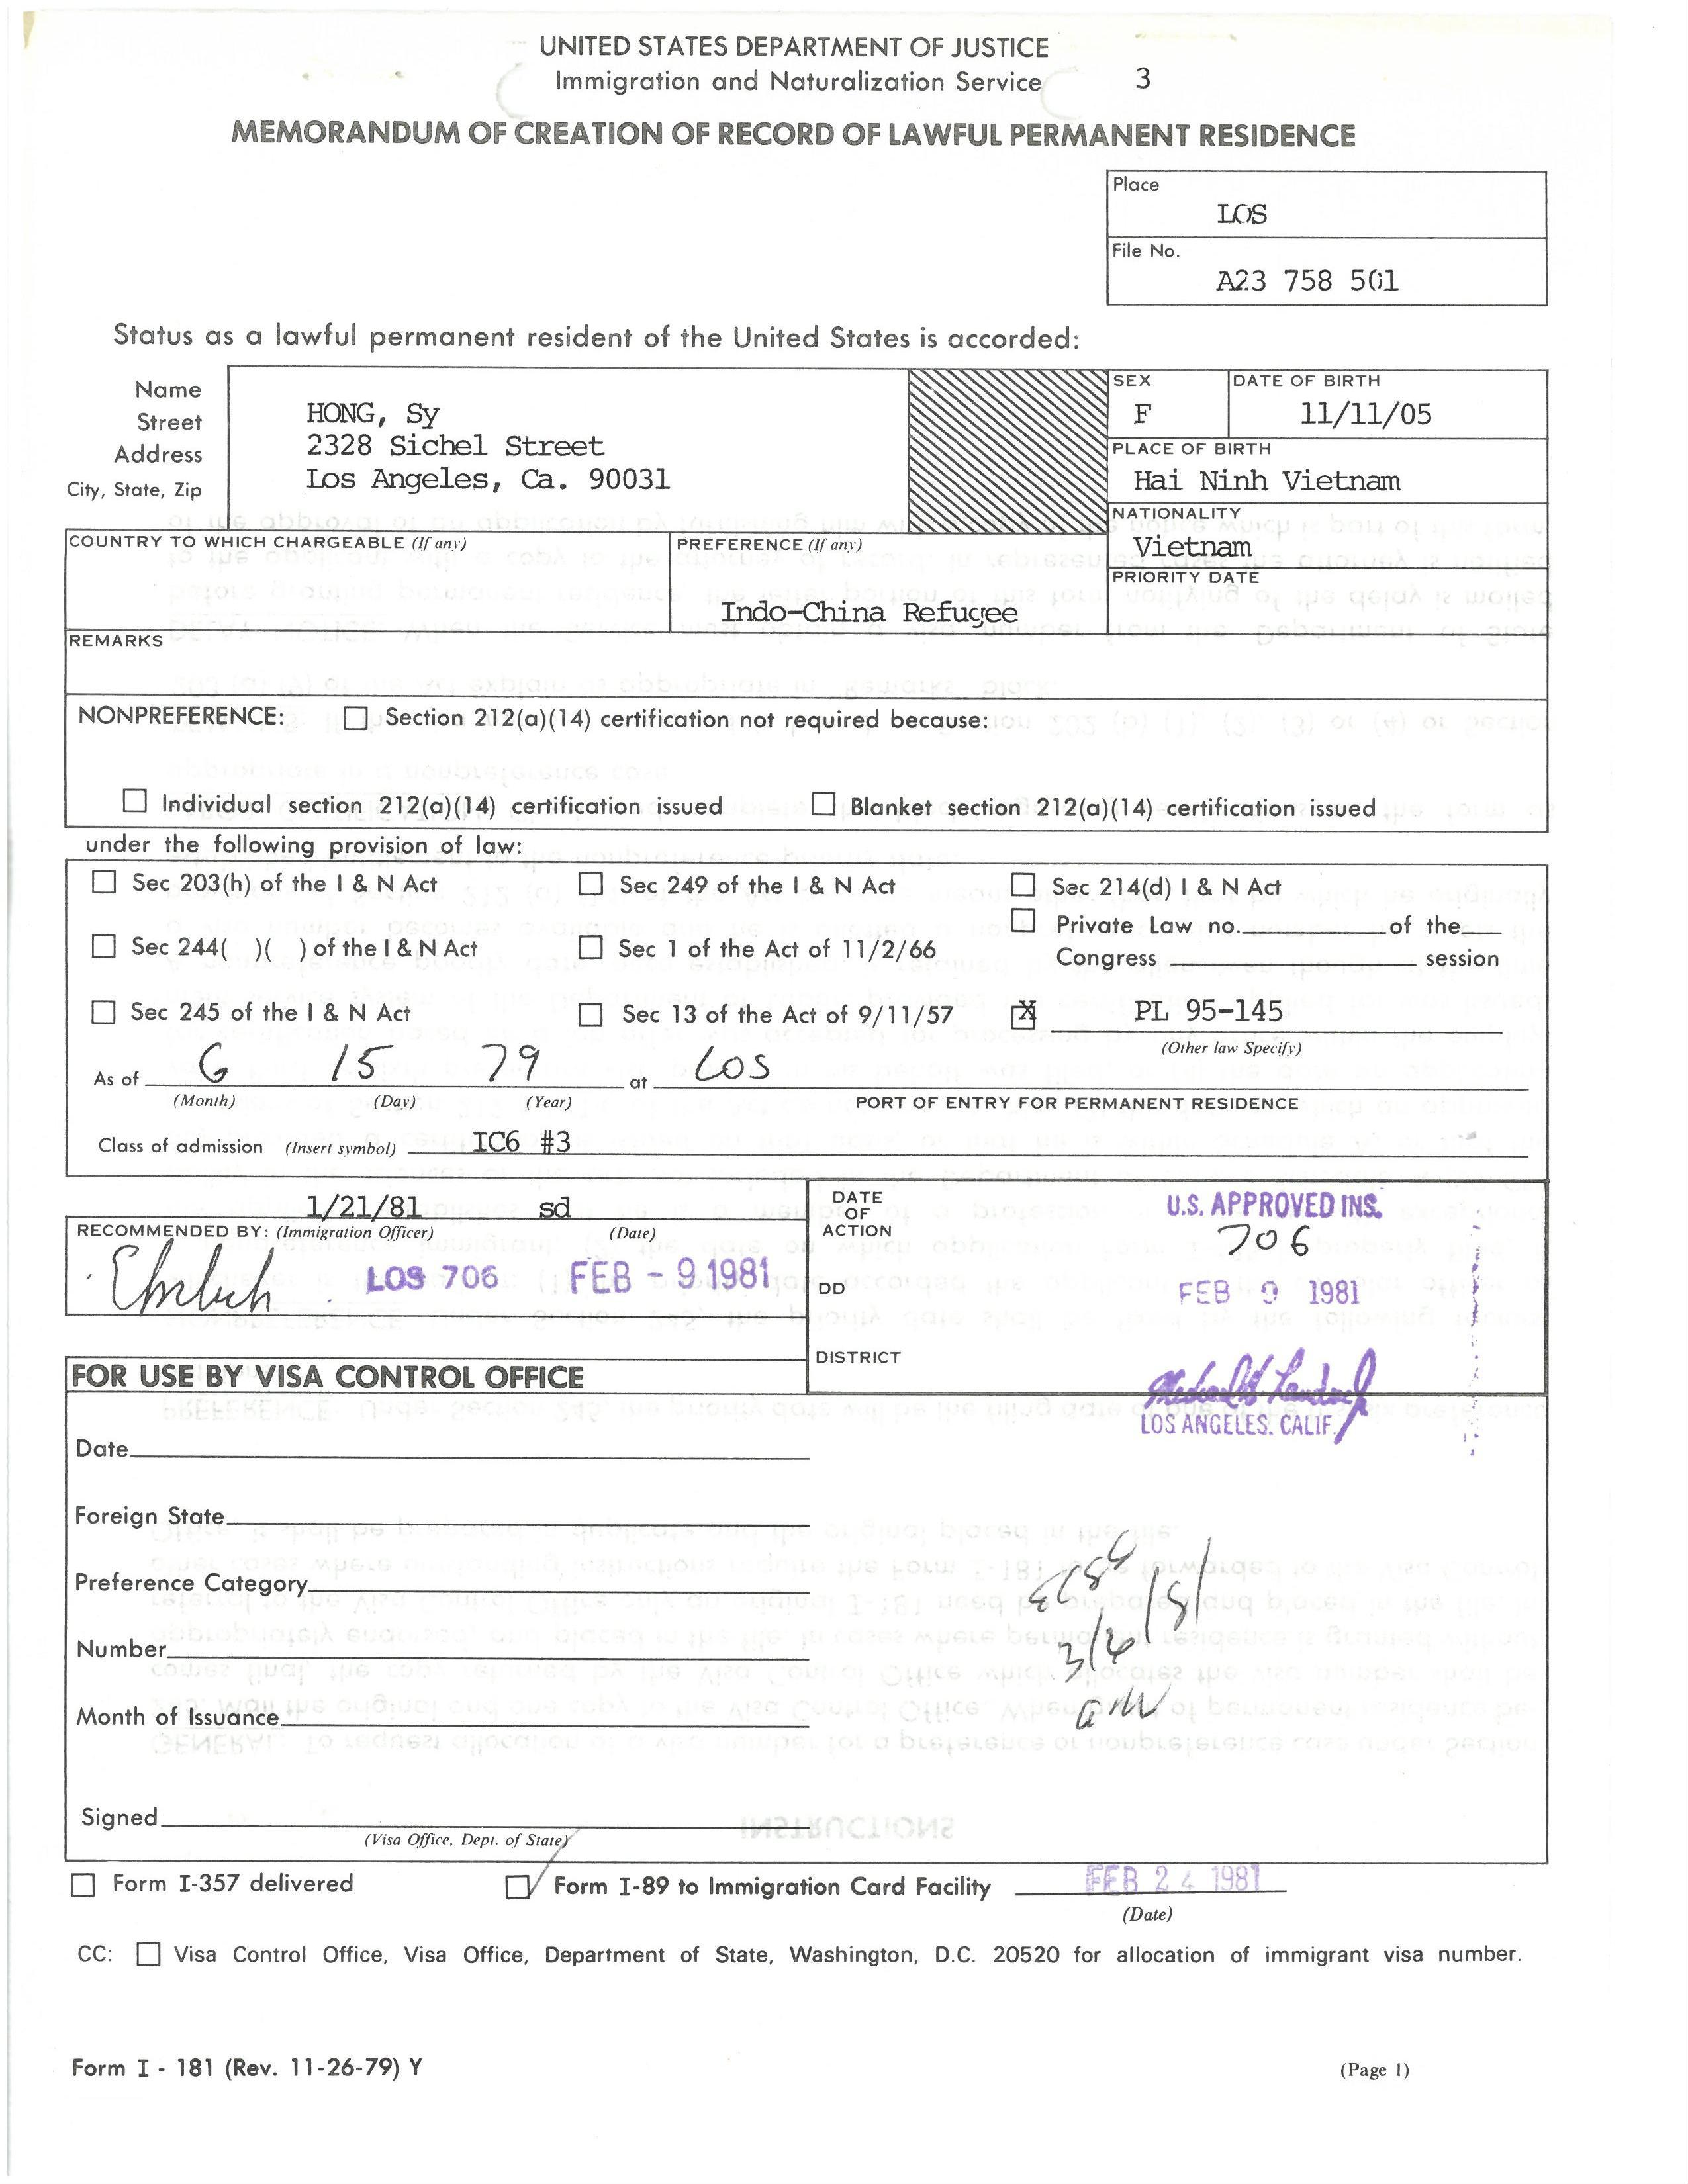 UNITED STATES DEPARTMENT OF JUSTICE
Immigration and Naturalization Service 3
MEMORANDUM OF CREATION OF RECORD OF LAWFUL PERMANENT RESIDENCE
Place
LOS
File No.
A23 758 501
Status as a lawful permanent resident of the United States is accorded:
Name
Street
Address
City, State, Zip
HONG, Sy
2328 Sichel Street
Los Angeles, Ca. 90031
SEX
F
DATE OF BIRTH
11/11/05
PLACE OF BIRTH
Hai Ninh Vietnam
NATIONALITY
Vietnam
PRIORITY DATE
COUNTRY TO WHICH CHARGEABLE (If any)
PREFERENCE (If any)
Indo-China Refugee
REMARKS
NONPREFERENCE: Section 212(a)(14) certification not required because:
Individual section 212(a)(14) certification issued Blanket section 212(a)(14) certification issued
under the following provision of law:
Sec 203(h) of the I & N Act Sec 249 of the I & N Act Sec 214(d) I & N Act
Private Law no. of the
Sec 244( )( ) of the I & N Act Sec 1 of the Act of 11/2/66 Congress session
Sec 245 of the I & N Act Sec 13 of the Act of 9/11/57 X PL 95-145
(Other law Specify)
As of 6 15 79 at LOS
(Month) (Day) (Year) PORT OF ENTRY FOR PERMANENT RESIDENCE
Class of admission (Insert symbol) IC6 #3
1/21/81 sd
RECOMMENDED BY: (Immigration Officer) (Date)
LOS 706 FEB - 9 1981
DATE
OF
ACTION
DD
DISTRICT
U.S. APPROVED INS.
706
FEB 9 1981
LOS ANGELES, CALIF.
FOR USE BY VISA CONTROL OFFICE
Date
Foreign State
Preference Category
Number
Month of Issuance
Signed
(Visa Office, Dept. of State)
3/6/81
Form I-357 delivered Form I-89 to Immigration Card Facility FEB 24 1981
(Date)
CC: Visa Control Office, Visa Office, Department of State, Washington, D.C. 20520 for allocation of immigrant visa number.
Form I - 181 (Rev. 11-26-79) Y (Page 1)